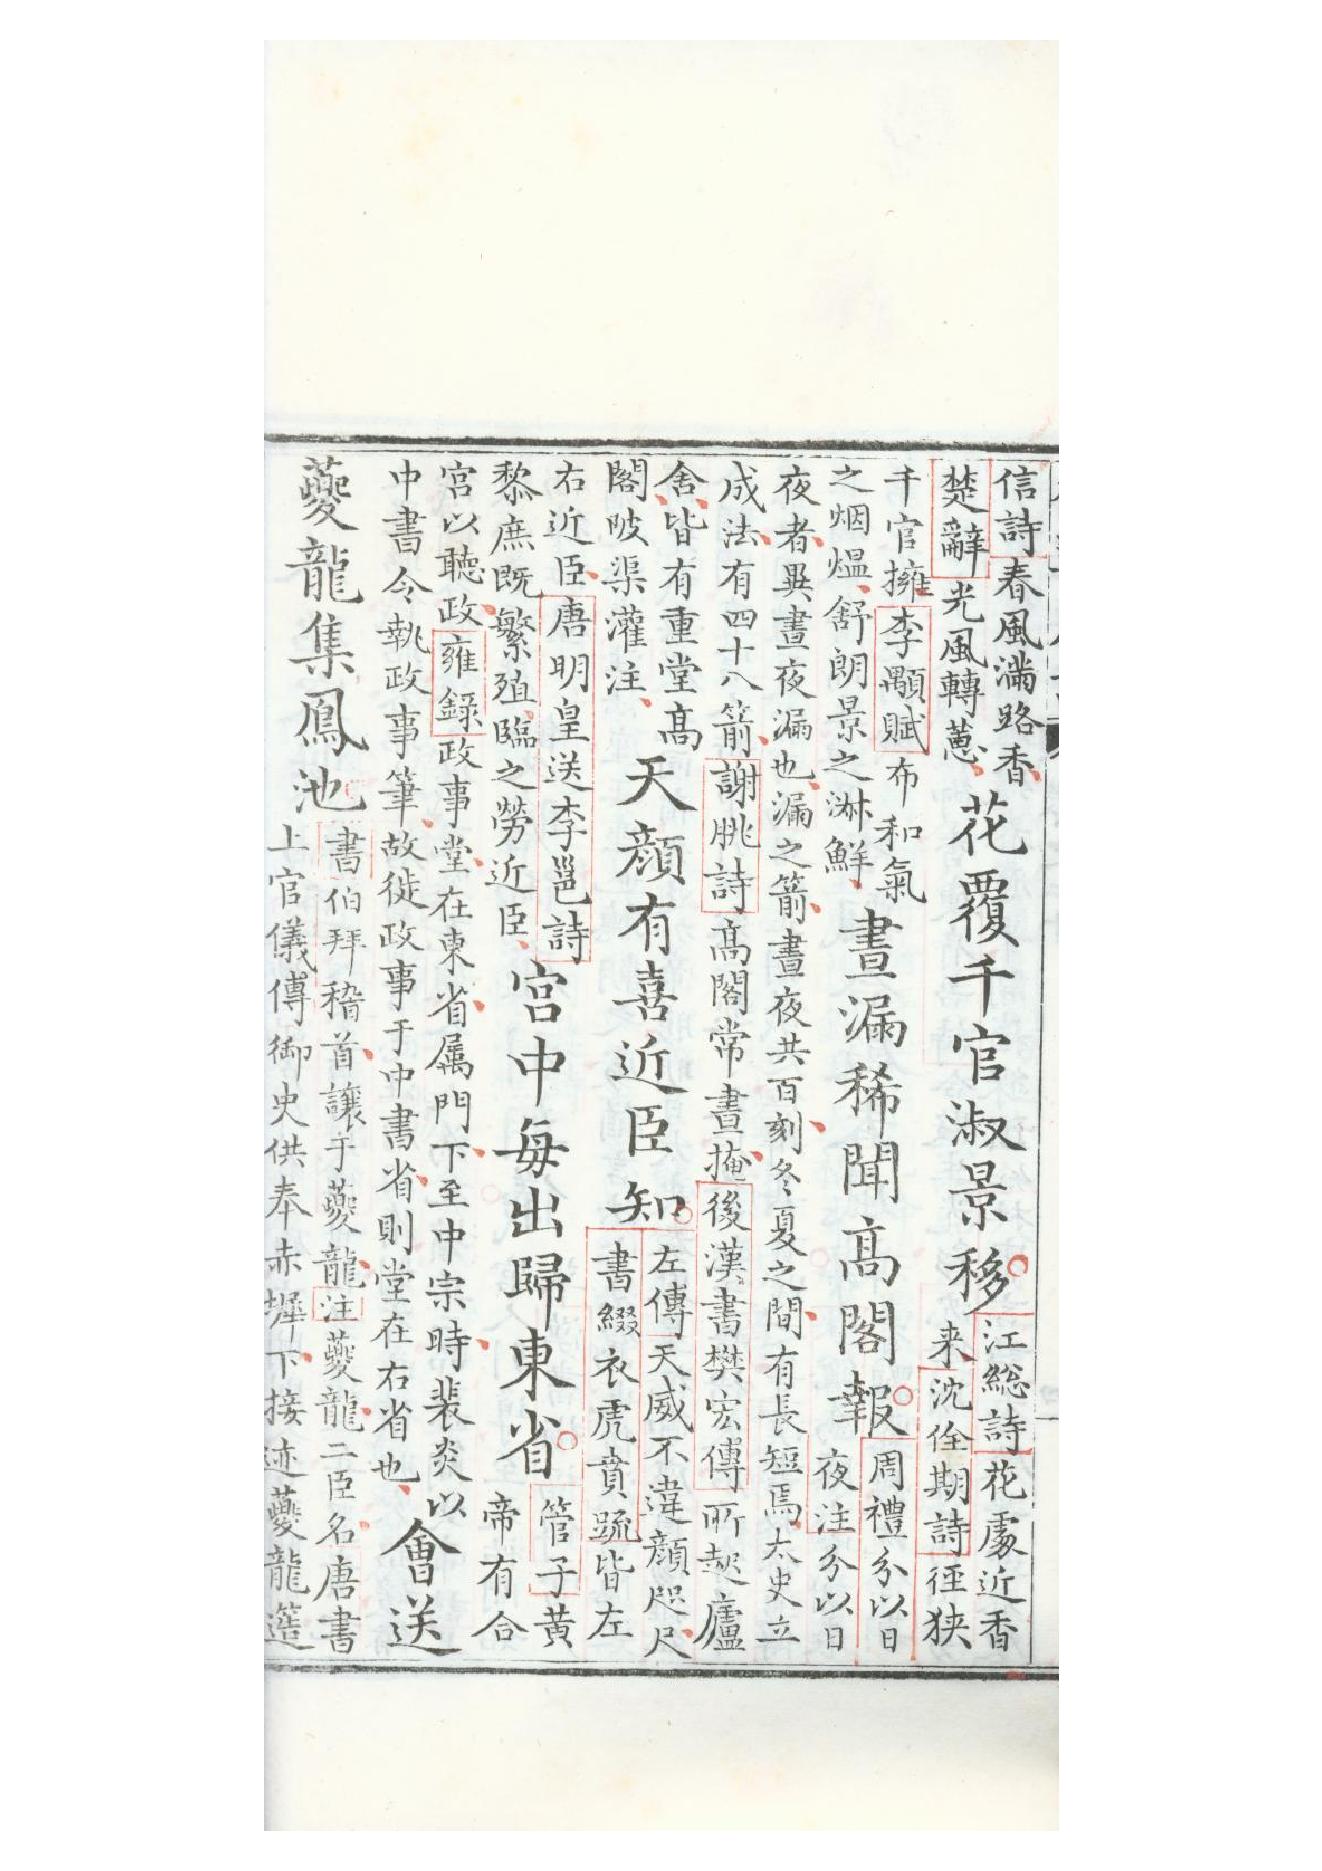 信詩春風滿路香
楚辭光風轉蕙
花覆千官淑景移
江総詩花處近香
来沈佺期詩徑狹
千官擁李顒賦布和氣
之烟熅舒朗景之淋鮮
晝漏稀聞高閣報
周禮分以日
夜注分以日
夜者異晝夜漏也漏之箭晝夜共百刻冬夏之間有長短焉太史立
成法有四十八箭謝朓詩高閣常晝掩後漢書樊宏傳所起廬
舍皆有重堂高
閣陂渠灌注
天顔有喜近臣知
左傳天威不違顔咫尺
書綴衣虎賁䟽皆左
右近臣唐明皇送李邕詩
黎庶既繁殖臨之勞近臣
宮中每出歸東省
管子黄
帝有合
宮以聽政雍録政事堂在東省属門下至中宗時裴炎以
中書令執政事筆故徙政事于中書省則堂在右省也
會送
夔龍集鳳池
書伯拜稽首讓于夔龍注夔龍二臣名唐書
上官儀傳御史供奉赤墀下接迹夔龍簉